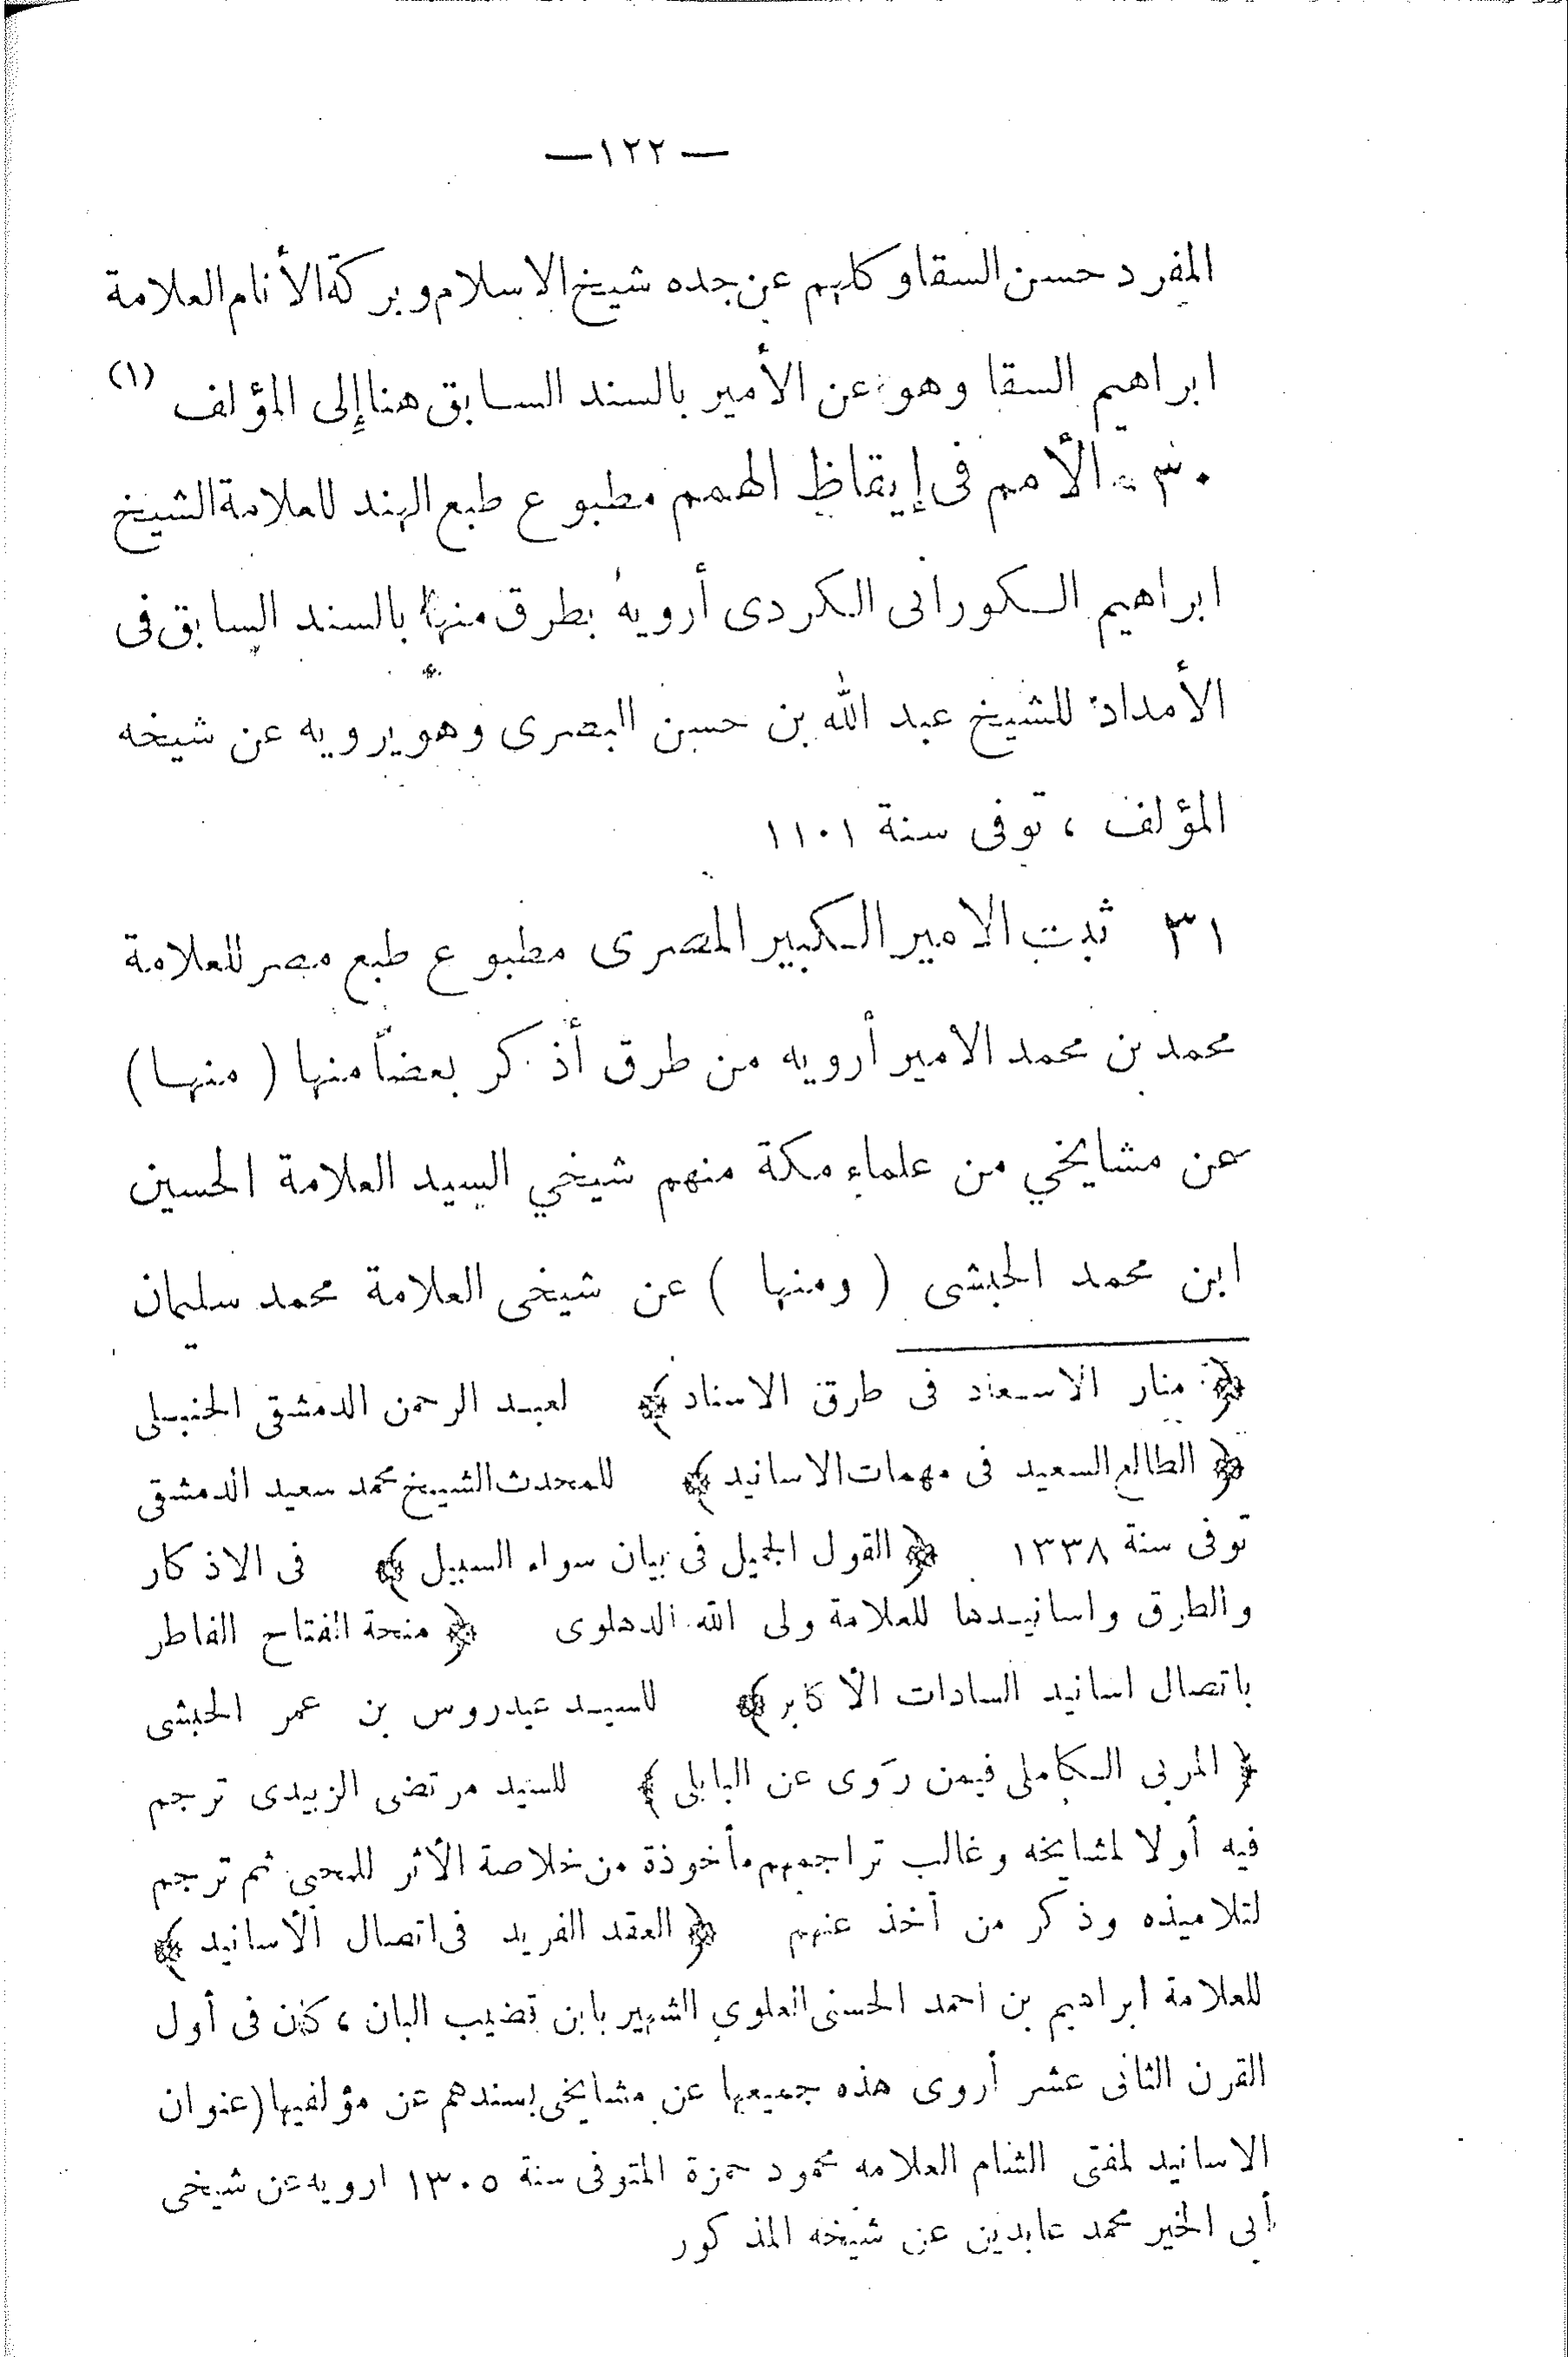 —١٢٢—
المفرد حسن السقا وكلهم عن جده شيخ الاسلام وبركة الأنام العلامة
ابراهيم السقا وهو عن الأمير بالسند السابق هنا إلى المؤلف (١)
٣٠ - الأمم فى إيقاظ الهمم مطبوع طبع الهند للعلامة الشيخ
ابراهيم الكورانى الكردى أرويه بطرق منها بالسند السابق فى
الأمداد للشيخ عبد الله بن حسن البصرى وهو يرويه عن شيخه
المؤلف ، توفى سنة ١١٠١
٣١ ثبت الامير الكبير المصرى مطبوع طبع مصر للعلامة
محمد بن محمد الامير أرويه من طرق أذكر بعضاً منها ( منها )
عن مشايخي من علماء مكة منهم شيخي السيد العلامة الحسين
ابن محمد الحبشى ( ومنها ) عن شيخى العلامة محمد سليمان
﴿ منار الاسعاد فى طرق الاسناد ﴾ لعبد الرحمن الدمشقى الحنبلى
﴿ الطالع السعيد فى مهمات الاسانيد ﴾ للمحدث الشيخ محمد سعيد الدمشقى
توفى سنة ١٣٣٨ ﴿ القول الجميل فى بيان سواء السبيل ﴾ فى الاذكار
والطرق واسانيدها للعلامة ولى الله الدهلوى ﴿ منحة الفتاح الفاطر
باتصال اسانيد السادات الأكابر ﴾ للسيد عيدروس بن عمر الحبشى
﴿ المربى الكاملى فيمن روى عن البابلى ﴾ للسيد مرتضى الزبيدى ترجم
فيه أولا لمشايخه وغالب تراجمهم مأخوذة من خلاصة الأثر للمحبى ثم ترجم
لتلاميذه وذكر من أخذ عنهم ﴿ العقد الفريد فى اتصال الأسانيد ﴾
للعلامة ابراهيم بن احمد الحسنى العلوي الشهير بابن قضيب البان ، كان فى أول
القرن الثانى عشر أروى هذه جميعها عن مشايخى بسندهم عن مؤلفيها (عنوان
الاسانيد لمفتى الشام العلامه محمود حمزة المتوفى سنة ١٣٠٥ ارويه عن شيخى
أبى الخير محمد عابدين عن شيخه المذكور